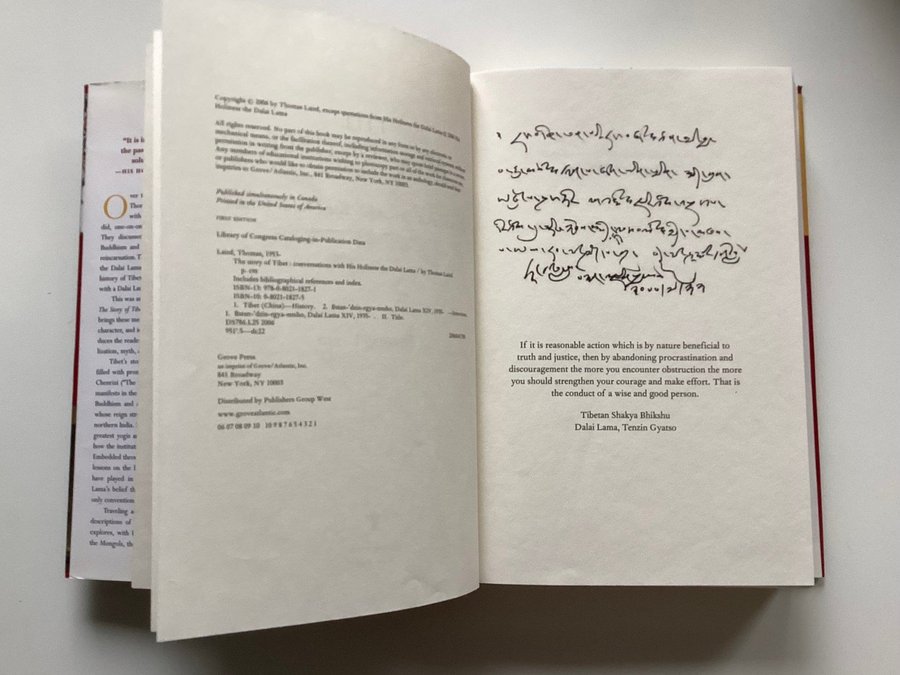 "It is
the pas
solu
—HIS H
Over
Thom
with
did, one-on-on
They discusse
Buddhism and
reincarnation. T
the Dalai Lama
history of Tibet
with a Dalai La
This was
The Story of Tibet
brings these me
character, and i
duces the reade
ilization, myth, a
Tibet's sto
filled with pro
Chenrizi ("The
manifests in the
Buddhism and
whose reign str
northern India.
greatest yogis a
how the institut
Embedded throu
lessons on the l
have played in
Lama's belief th
only convention
Traveling a
descriptions of
explores, with
the Mongols, th
Copyright © 2006 by Thomas Laird, except quotations from His Holiness the Dalai Lama © 2006 His
Holiness the Dalai Lama
All rights reserved. No part of this book may be reproduced in any form or by any electronic or
mechanical means, or the facilitation thereof, including information storage and retrieval systems, without
permission in writing from the publisher, except by a reviewer, who may quote brief passages in a review.
Any members of educational institutions wishing to photocopy part or all of the work for classroom use,
or publishers who would like to obtain permission to include the work in an anthology, should send their
inquiries to Grove/Atlantic, Inc., 841 Broadway, New York, NY 10003.
Published simultaneously in Canada
Printed in the United States of America
FIRST EDITION
Library of Congress Cataloging-in-Publication Data
Laird, Thomas, 1953-
The story of Tibet : conversations with His Holiness the Dalai Lama / by Thomas Laird
p. cm
Includes bibliographical references and index.
ISBN-13: 978-0-8021-1827-1
ISBN-10: 0-8021-1827-5
1. Tibet (China)—History. 2. Bstan-'dzin-rgya-mtsho, Dalai Lama XIV, 1935- —Interviews.
I. Bstan-'dzin-rgya-mtsho, Dalai Lama XIV, 1935- . II. Title.
DS786.L25 2006
951'.5—dc22
Grove Press
an imprint of Grove/Atlantic, Inc.
841 Broadway
New York, NY 10003
Distributed by Publishers Group West
www.groveatlantic.com
06 07 08 09 10 10 9 8 7 6 5 4 3 2 1
If it is reasonable action which is by nature beneficial to
truth and justice, then by abandoning procrastination and
discouragement the more you encounter obstruction the more
you should strengthen your courage and make effort. That is
the conduct of a wise and good person.
Tibetan Shakya Bhikshu
Dalai Lama, Tenzin Gyatso